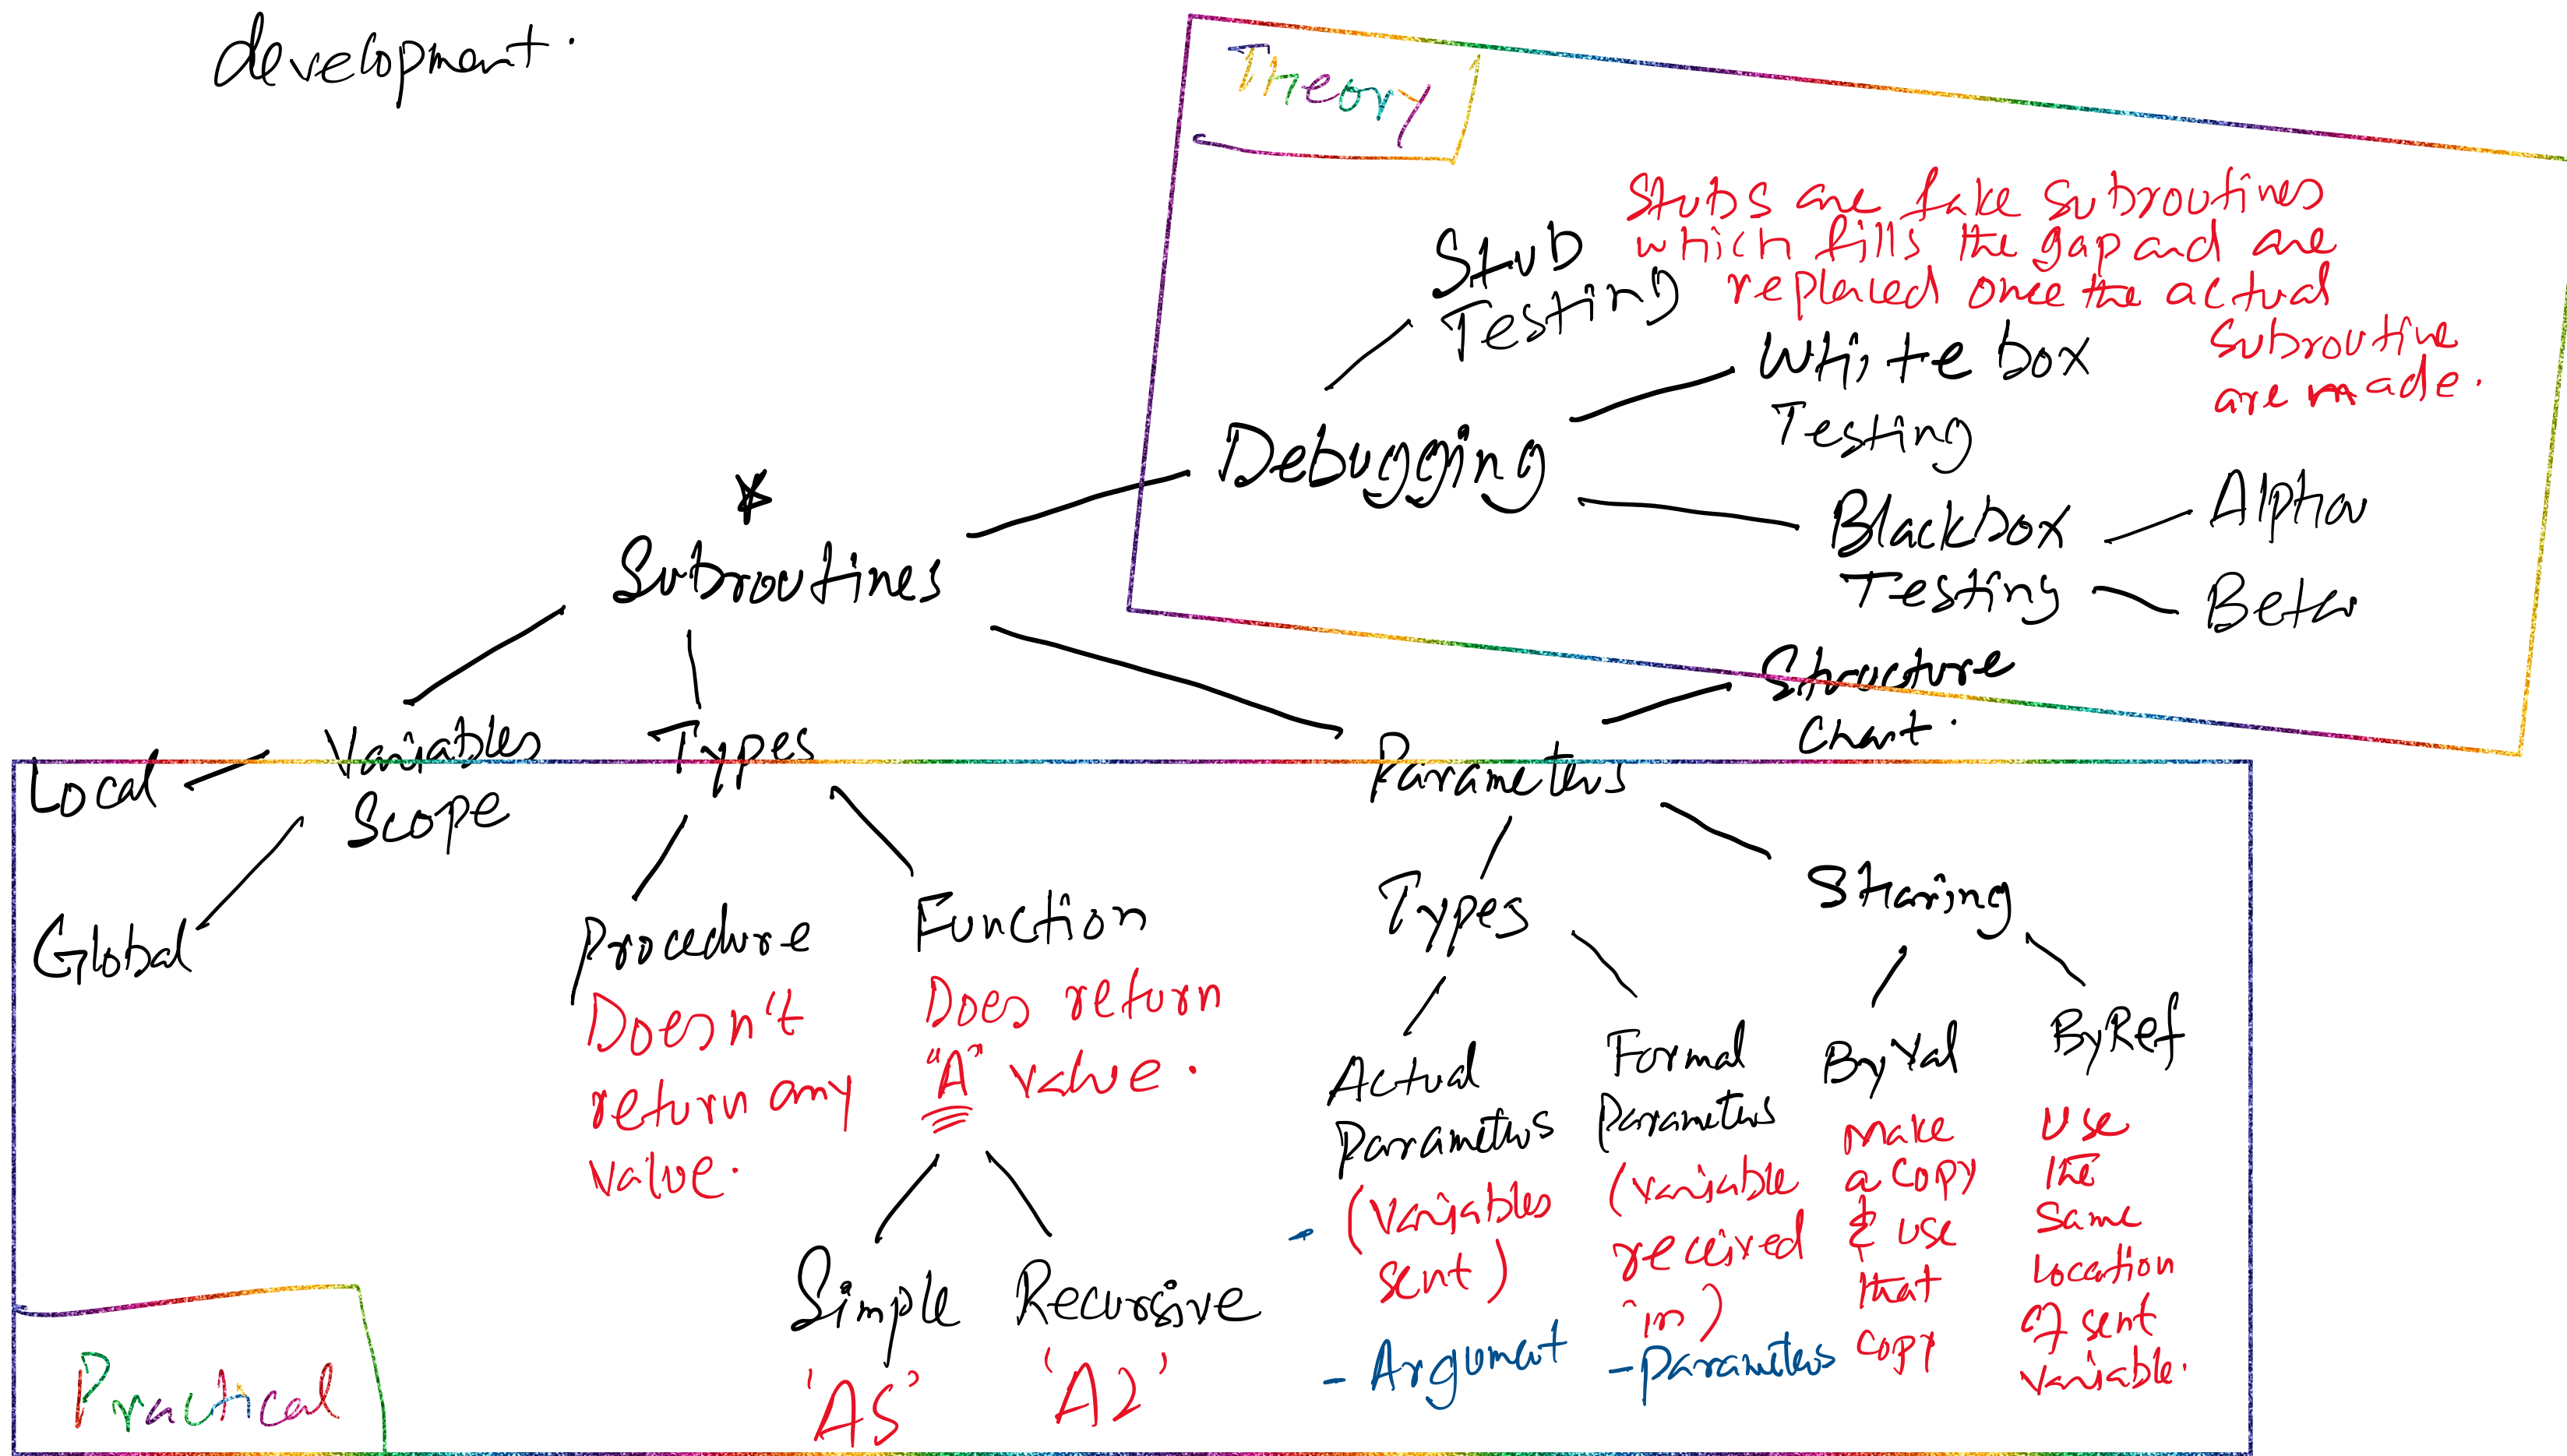 development.
Theory
Stubs are fake subroutines
which fills the gap and are
replaced once the actual
subroutine
are made.
Stub
Testing
White box
Testing
Debugging
Blackbox
Testing
Alpha
Beta
*
Subroutines
Structure
Chart.
Variables
Scope
Local
Global
Types
Procedure
Doesn't
return any
value.
Function
Does return
"A" value.
Simple
'AS'
Recursive
'A2'
Parameters
Types
Actual
Parameters
- (Variables
sent)
- Argument
Formal
Parameters
(variable
received
in)
- parameters
Sharing
ByVal
Make
a copy
& use
that
copy
ByRef
Use
the
same
location
of sent
variable.
Practical